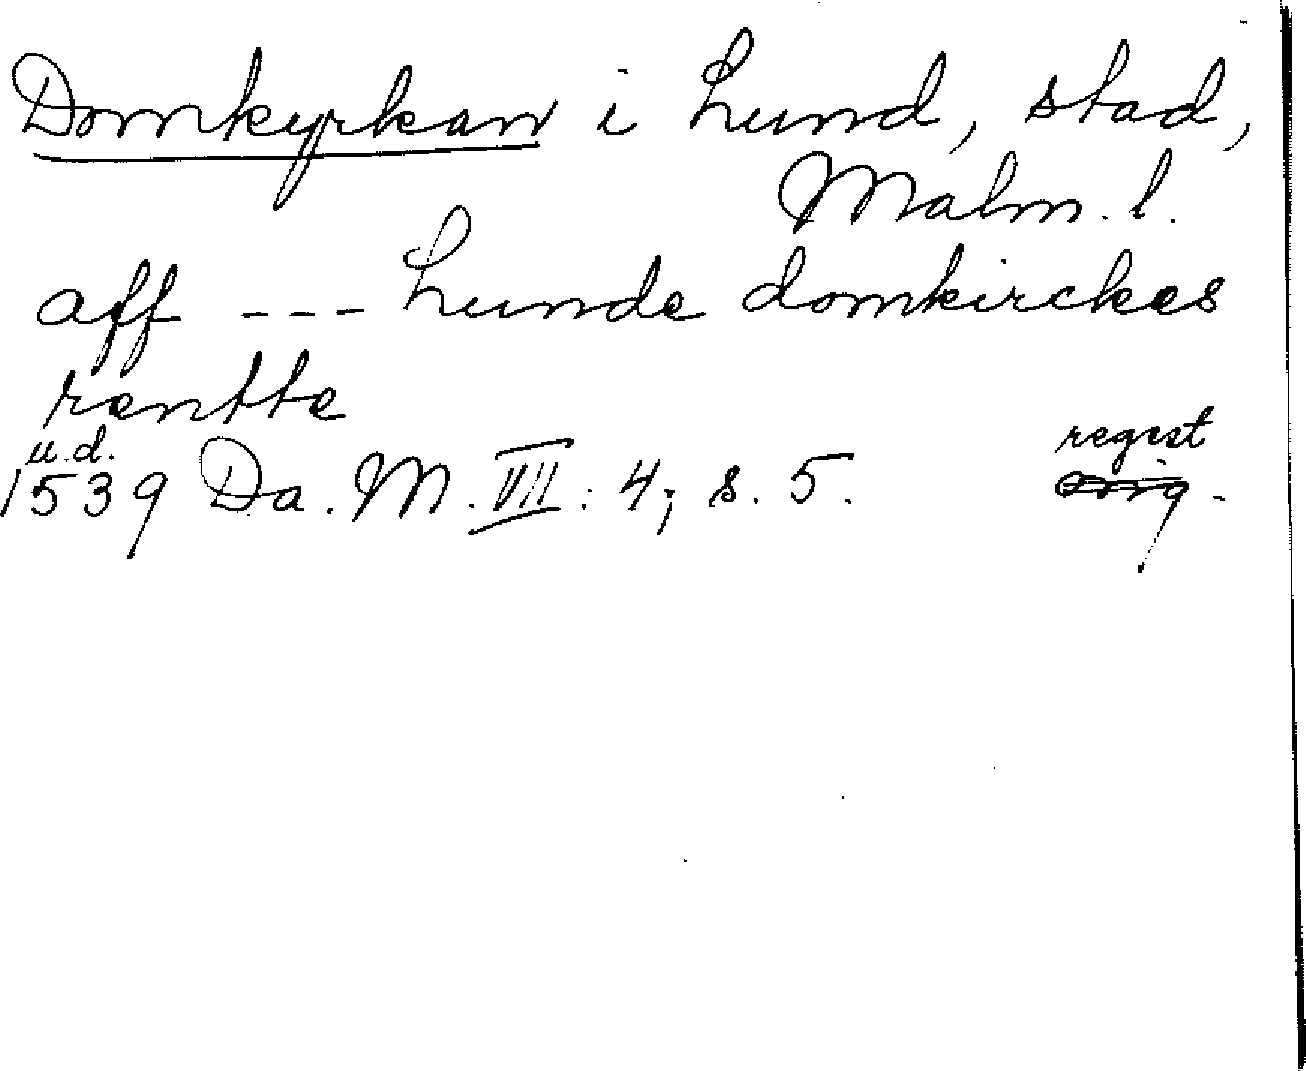 Domkyrkan i Lund, stad,
Malm. l.
aff --- Lunde domkirckes
rentte
u.d. regist
1539 Da. M. VII: 4; s. 5. orig.